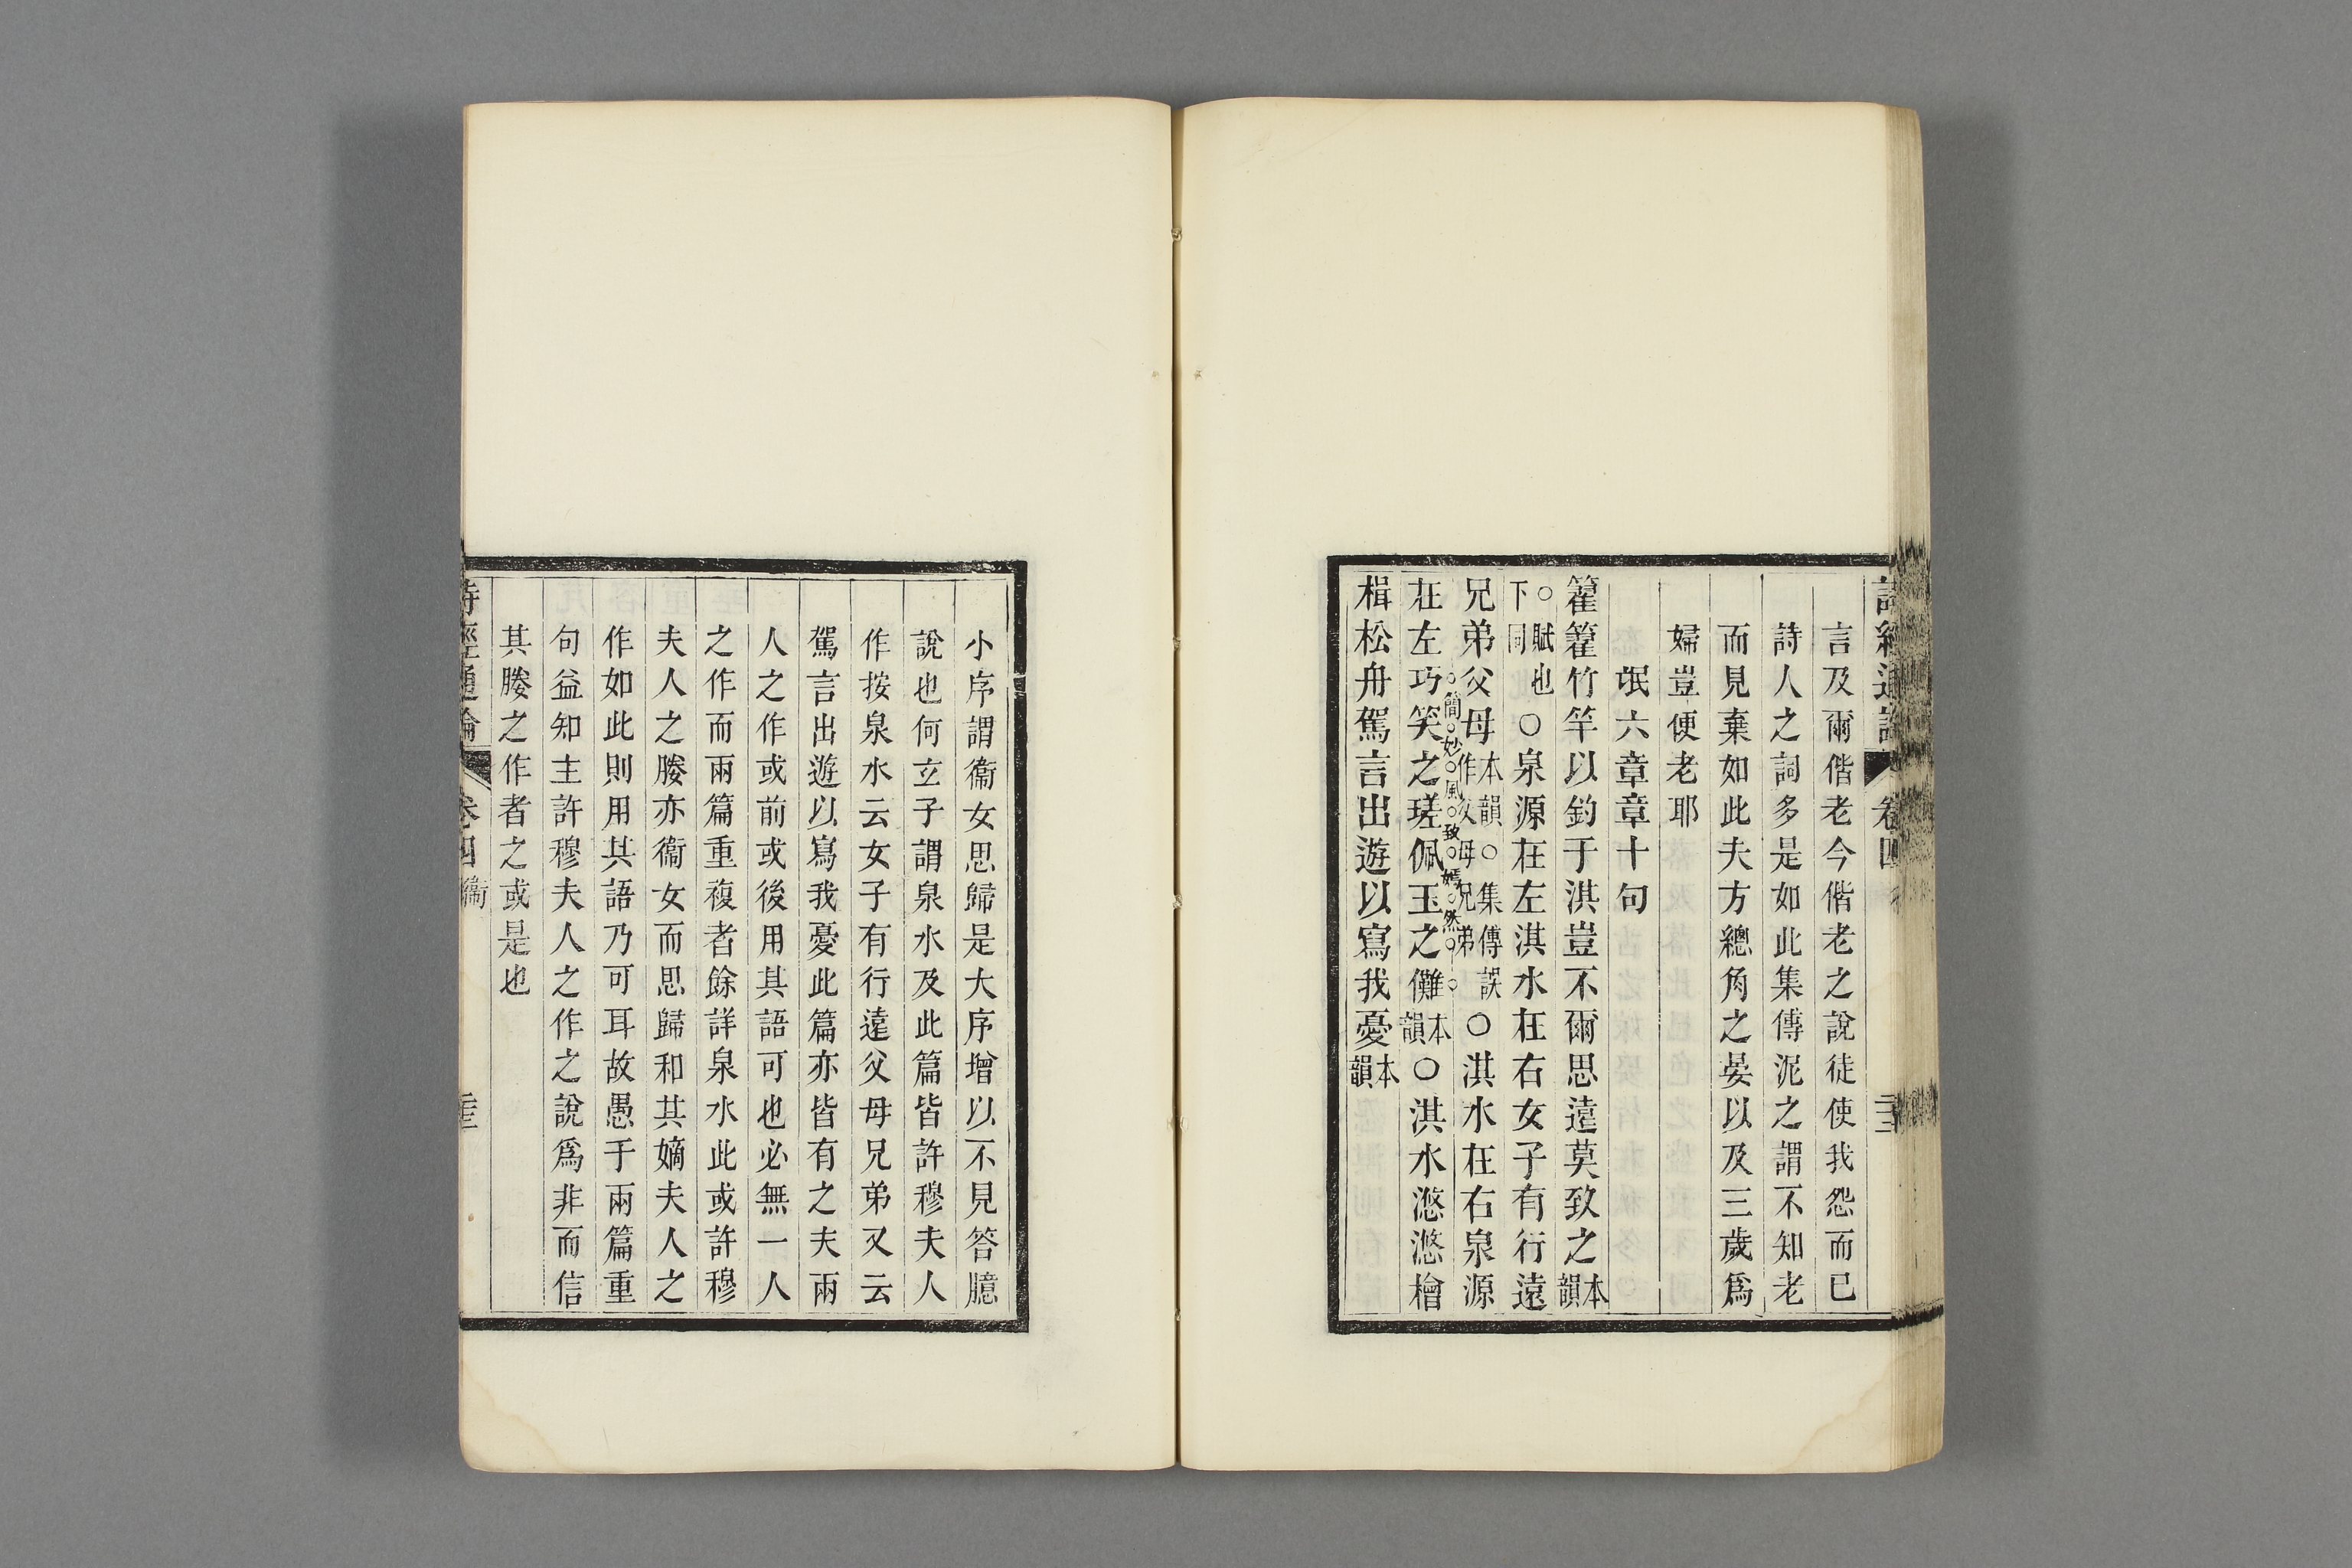 詩經通論 卷四
言及爾偕老今偕老之說徒使我怨而已
詩人之詞多是如此集傳泥之謂不知老
而見棄如此夫方總角之晏以及三歲爲
婦豈便老耶
氓六章章十句
籊籊竹竿以釣于淇豈不爾思遠莫致之本韻
○賦也下同○泉源在左淇水在右女子有行遠
兄弟父母本韻○集傳誤作父母兄弟○淇水在右泉源
簡妙風致嫣然
在左巧笑之瑳佩玉之儺本韻○淇水滺滺檜
楫松舟駕言出遊以寫我憂本韻
小序謂衞女思歸是大序增以不見答臆
說也何玄子謂泉水及此篇皆許穆夫人
作按泉水云女子有行遠父母兄弟又云
駕言出遊以寫我憂此篇亦皆有之夫兩
人之作或前或後用其語可也必無一人
之作而兩篇重複者餘詳泉水此或許穆
夫人之媵亦衞女而思歸和其嫡夫人之
作如此則用其語乃可耳故愚于兩篇重
句益知主許穆夫人之作之說爲非而信
其媵之作者之或是也
詩經通論 卷四 衞